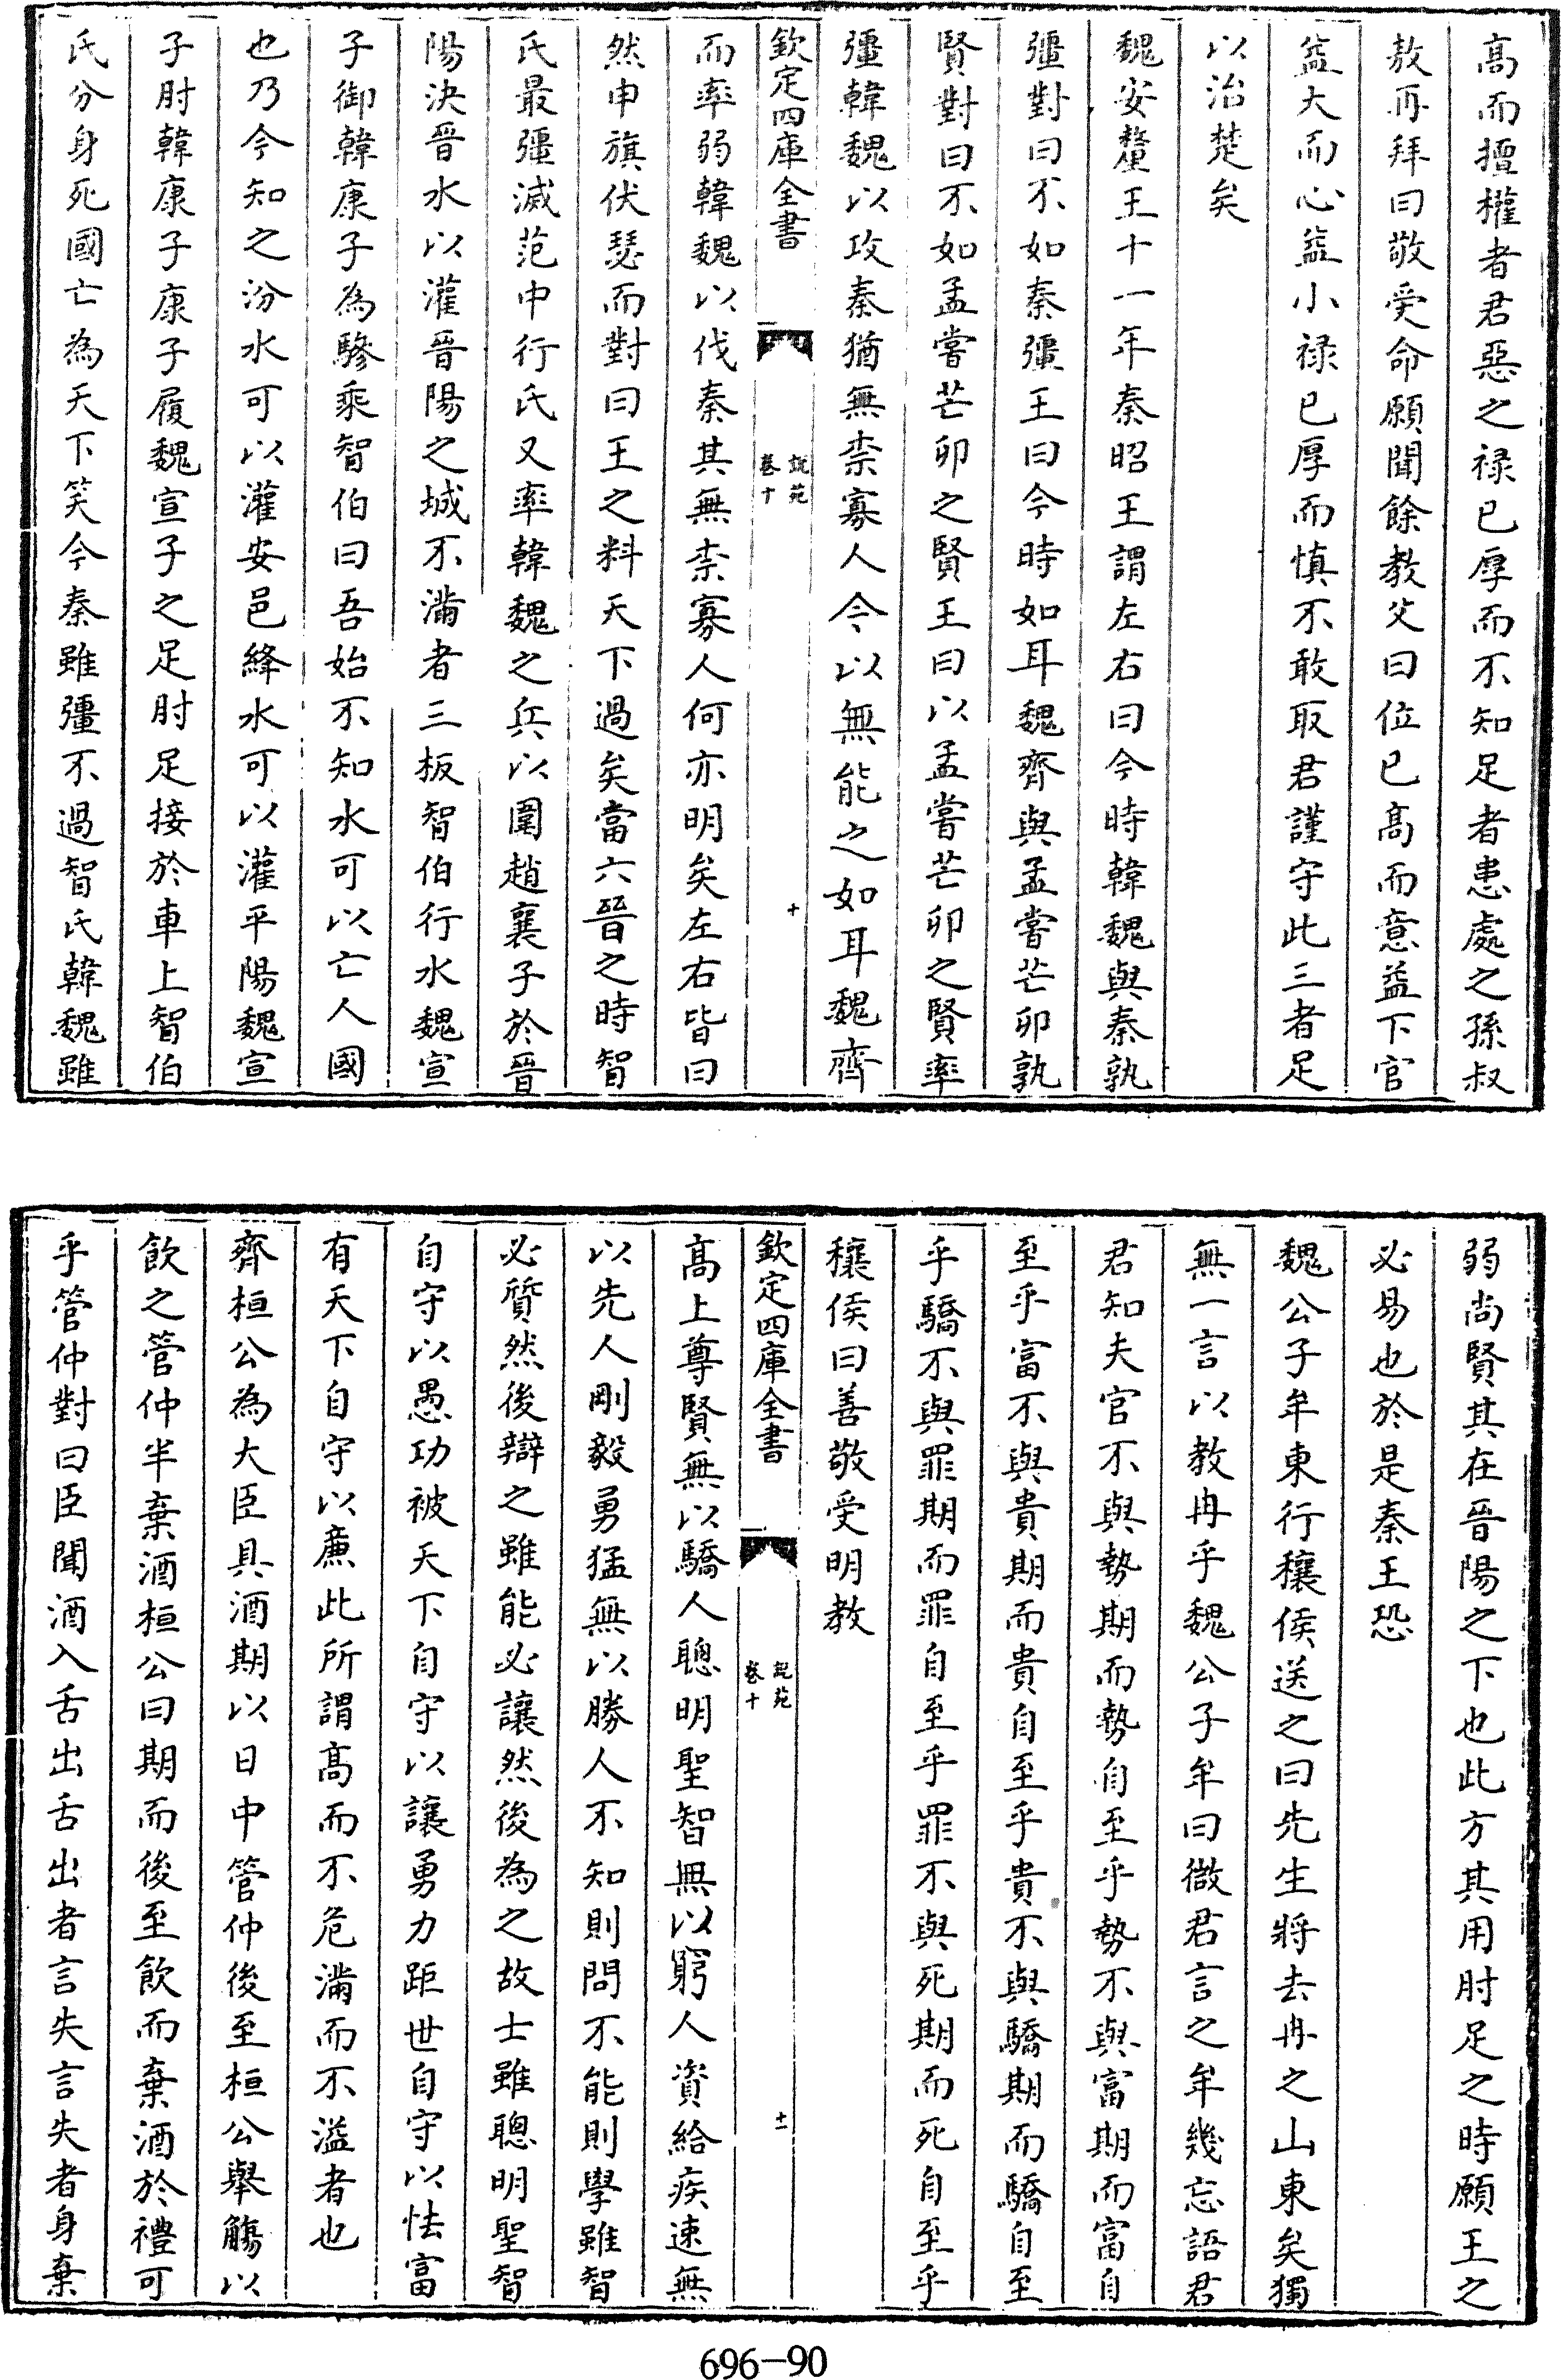 髙而擅權者君惡之禄已厚而不知足者患處之孫叔
敖再拜曰敬受命願聞餘教父曰位已髙而意益下官
益大而心益小禄已厚而慎不敢取君謹守此三者足
以治楚矣
魏安釐王十一年秦昭王謂左右曰今時韓魏與秦孰
彊對曰不如秦彊王曰今時如耳魏齊與孟嘗芒卯孰
賢對曰不如孟嘗芒卯之賢王曰以孟嘗芒卯之賢率
彊韓魏以攻秦猶無柰寡人今以無能之如耳魏齊
欽定四庫全書
說苑
卷十
十
而率弱韓魏以伐秦其無柰寡人何亦明矣左右皆曰
然申旗伏瑟而對曰王之料天下過矣當六晉之時智
氏最彊滅范中行氏又率韓魏之兵以圍趙襄子於晉
陽決晉水以灌晉陽之城不滿者三板智伯行水魏宣
子御韓康子為驂乘智伯曰吾始不知水可以亡人國
也乃今知之汾水可以灌安邑絳水可以灌平陽魏宣
子肘韓康子康子履魏宣子之足肘足接於車上智伯
氏分身死國亡為天下笑今秦雖彊不過智氏韓魏雖
弱尚賢其在晉陽之下也此方其用肘足之時願王之
必易也於是秦王恐
魏公子牟東行穰侯送之曰先生將去冉之山東矣獨
無一言以教冉乎魏公子牟曰微君言之牟幾忘語君
君知夫官不與勢期而勢自至乎勢不與富期而富自
至乎富不與貴期而貴自至乎貴不與驕期而驕自至
乎驕不與罪期而罪自至乎罪不與死期而死自至乎
穰侯曰善敬受明教
欽定四庫全書
說苑
卷十
十一
髙上尊賢無以驕人聰明聖智無以窮人資給疾速無
以先人剛毅勇猛無以勝人不知則問不能則學雖智
必質然後辯之雖能必讓然後為之故士雖聰明聖智
自守以愚功被天下自守以讓勇力距世自守以怯富
有天下自守以廉此所謂髙而不危滿而不溢者也
齊桓公為大臣具酒期以日中管仲後至桓公舉觴以
飲之管仲半棄酒桓公曰期而後至飲而棄酒於禮可
乎管仲對曰臣聞酒入舌出舌出者言失言失者身棄
696-90